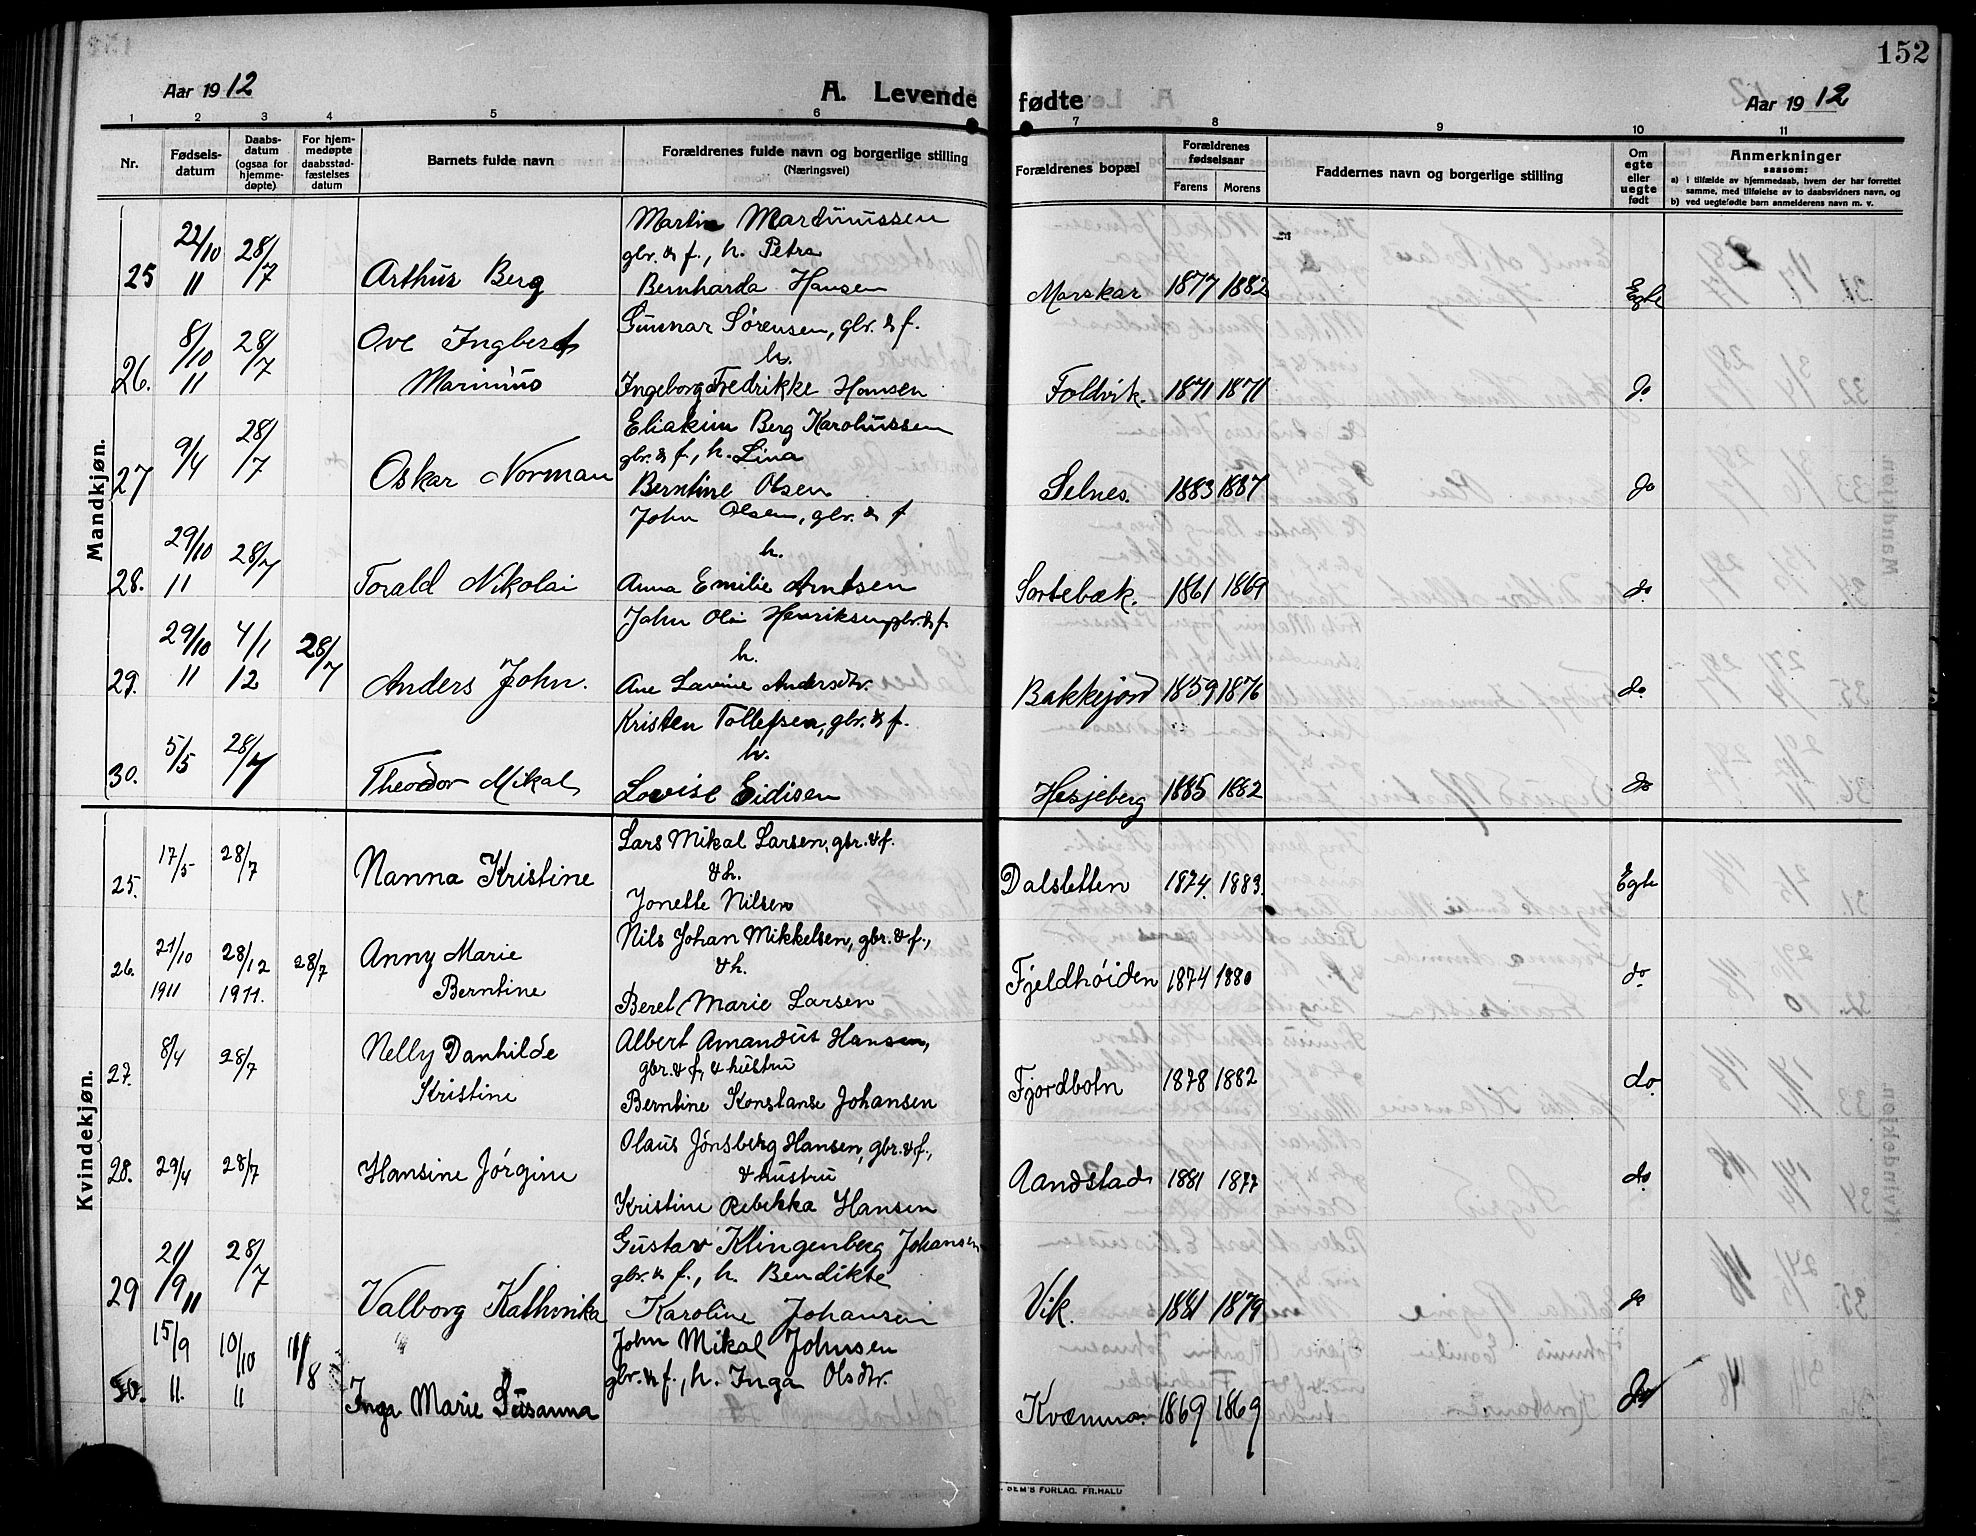 152
Aar 1912 A. Levende fødte Aar 1912
1 2 3 4 5 6 7 8 9 10 11
Nr. Fødselsdatum Daabsdatum (ogsaa for hjemmedøpte) For hjemmedøpte daabsstadfæstelses datum Barnets fulde navn Forældrenes fulde navn og borgerlige stilling (Næringsvei) Forældrenes bopæl Forældrenes fødselsaar Farens Morens Faddernes navn og borgerlige stilling Om egte eller uegte født Anmerkninger saasom:
a) i tilfælde av hjemmedaab, hvem der har forrettet samme, med tilføielse av to daabsvidners navn, og
b) ved uegtefødte barn anmelderens navn m. v.
Mandkjøn.
Martin Martinussen
22/10 28/7 gbr. & f., h. Petra
25 11 Arthur Berg Bernharda Hansen Marskar 1877 1882 Egte
8/10 28/7 Ove Ingbert Gunnar Sørensen, gbr. & f.
h.
26. 11 Marinius Ingeborg Fredrikke Hansen Foldvik. 1871 1871 do
Eliakim Berg Karoliussen
9/4 28/7 gbr. & f., h. Lina
27 Oskar Norman Berntine Olsen Selnes. 1883 1887 do
John Olsen, gbr. & f
29/10 28/7 h.
28. 11 Torald Nikolai Anna Emilie Arntsen Sortebæk. 1861 1869 do
John Ole Henriksen gbr. & f.
29/10 4/1 28/7 h.
29. 11 12 Anders John. Ane Lavine Andersdtr. Bakkejord 1859 1876 do
Kristen Tollefsen, gbr. & f.
5/5 28/7 h.
30. Theodor Mikal Lovise Eidisen Hesjeberg 1885 1882 do
Kvindekjøn.
Lars Mikal Larsen, gbr. & f.
17/5 28/7 & h.
25. Nanna Kristine Jonette Nilsen Dalsletten 1874. 1883. Egte
Nils Johan Mikkelsen, gbr. & f.,
26. 21/10 28/12 28/7 Anny Marie & h.
1911 1911. Berntine Beret Marie Larsen Fjeldhøiden 1874 1880 do
Albert Amandus Hansen,
8/4 28/7 Nelly Danhilde gbr. & f, & hustru
27. Kristine Berntine Konstanse Johansen Fjordbotn 1878 1882 do
Olaus Jønsberg Hansen, gbr. & f.,
28. 29/4 28/7 Hansine Jørgine & hustru
Kristine Rebekka Hansen Aandstad 1881 1877 do
Gustav Klingenberg Johansen
21/9 28/7 gbr. & f., h. Bendikte
29 11 Valborg Kathinka Karoline Johansen Vik. 1881 1879 do
15/9 10/10 11/8 John Mikal Johnsen
gbr. & f., h. Inga Olsdtr.
30. 11. 11 Inga Marie Susanna Kvænmo 1869 1869 do
SEM'S FORLAG. FR.HALD